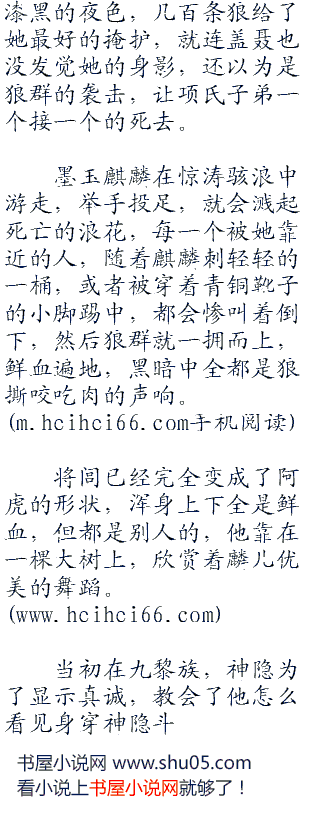 漆黑的夜色，几百条狼给了
她最好的掩护，就连盖聂也
没发觉她的身影，还以为是
狼群的袭击，让项氏子弟一
个接一个的死去。
墨玉麒麟在惊涛骇浪中
游走，举手投足，就会溅起
死亡的浪花，每一个被她靠
近的人，随着麒麟刺轻轻的
一桶，或者被穿着青铜靴子
的小脚踢中，都会惨叫着倒
下，然后狼群就一拥而上，
鲜血遍地，黑暗中全都是狼
撕咬吃肉的声响。
(m.hcihci66.com手机阅读)
将闾已经完全变成了阿
虎的形状，浑身上下全是鲜
血，但都是别人的，他靠在
一棵大树上，欣赏着麟儿优
美的舞蹈。
(www.hcihci66.com)
当初在九黎族，神隐为
了显示真诚，教会了他怎么
看见身穿神隐斗
书屋小说网 www.shu05.com
看小说上书屋小说网就够了！